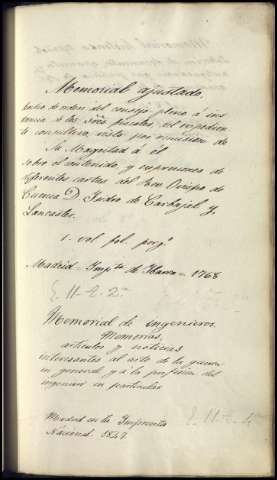 Memorial ajustado
hecho de orden del consejo pleno á ins
tancia de los Sres fiscales, del espediente
consultivo, visto por remision de
Su Magestad á él
sobre el contenido, y expresiones de
diferentes cartas del Rvo Obispo de
Cuenca Dn Isidro de Carbajal y
Lancaster.
1. vol. fol. perg.º
Madrid - Impta de Ibarra - 1768
E. 11-2. 2ª
Memorial de ingenieros.
Memorias,
articulos y noticias
interesantes al arte de la guerra
en general y á la profesion del
ingeniero en particular
E. 11-2. 4ª
Madrid en la Imprenta
Nacional. 1847